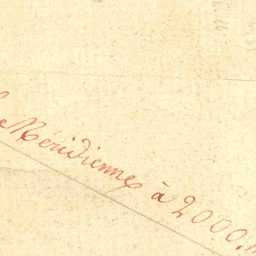 Méridienne à 2000.m